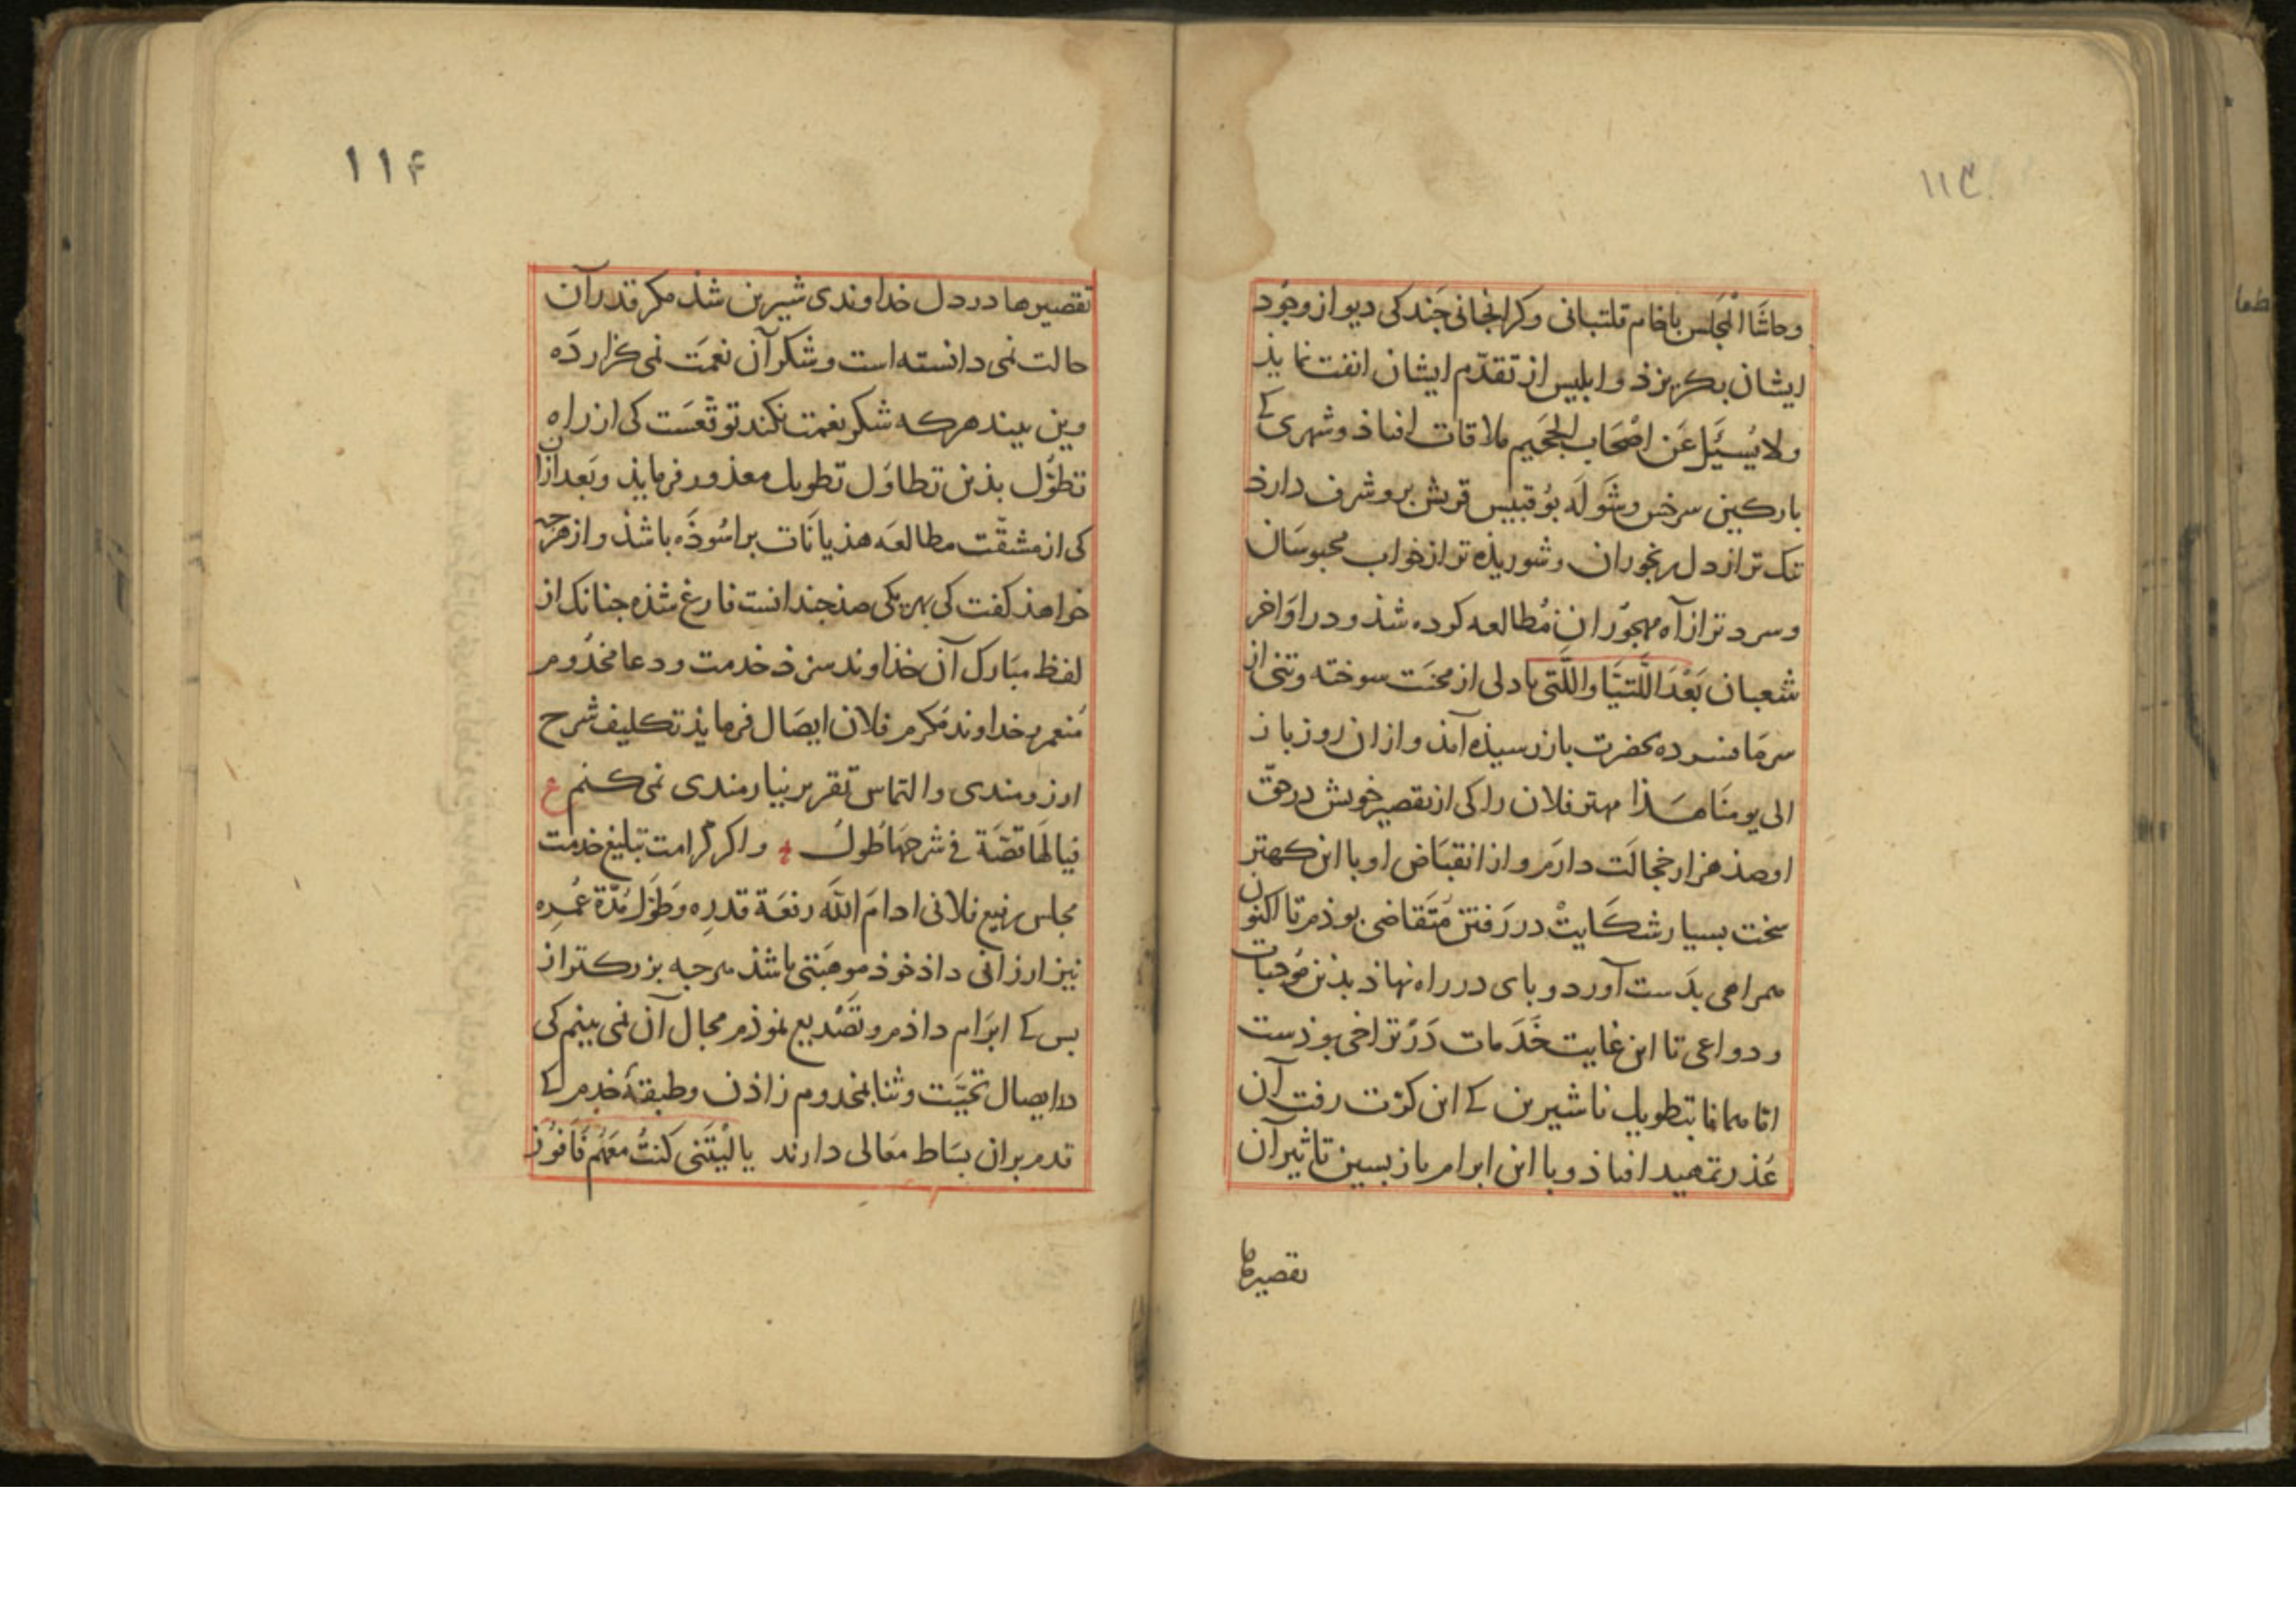 ۱۱۳
وحاشَا الْمَجلس باخام قلتبانی وکرانجانی جَند کی دیو از وجُود
ایشان بکریزذ و ابلیس از تقدّم ایشان انفت نمایذ
ولا یُسیَٔل عَن اصْحَاب الجحَیم ملاقات افتاذ و شهری کے
بارکین سرخس وشَولَه بُوقبیس قریش برو شرف دارذ
تنک تر از دل رنجوران وشوریذه تر از خواب محبوسَان
وسرد تر از آه مهجُوران مُطالعه کرده شذ و در اوَاخر
شعبان بَعْدَ اللَّتیَّا واللَّتی با دلی از محنَت سوخته وتنی از
سرمَا فسرده بحضرت باز رسیذه آمذ و ازان روز باز
الی یومنَا هَذا مهتر فلان را کی از تقصیر خویش در حقّ
او صذ هزار خجالَت دارَم و از انقبَاض او با این کهتر
سخت بسیار شکَایتْ در رَفتن مُتَقاضی بوذم تا اکنون
همراهی بدَست آورد و بای در راه نهاذ بذین مُوجبات
ودواعی تا این غایت خَدَمات دَرْ تراخی بوذست
امّا همانا بتطویل ناشیرین کے این کرّت رفت آن
عُذر تمهید افتاذ و با این ابرام باز بسین تاثیر آن
تقصیرها
۱۱۴
تقصیرها در دل خداوندی شیرین شذ مکر قدر آن
حالت نمی دانسته است وشکر آن نعمَت نمی کزاردَه
وین بیند هرکه شکر نعمت نکند توقّعَست کی از راه
تطوُّل بذین تطاوُل تطویل معذور فرمایذ وبَعد از آن
کی از مشقّت مطالعَه هذیانَات براسُوذَه باشذ و از هرجه
خواهذ کفت کی بهر یکی صذ جندانست فارغ شذه جنانک از
لفظ مبَارک آن خذاوند سزذ خدمت ودعا مخدُوم
مُنعم خداوند مُکرم فلان ایصَال فرمایذ تکلیف شرح
ارزومندی والتماس تقریر نیازمندی نمی کنم ع
فیالَهَا قصَّة فی شرحهَا طُولُ ؞ واکر کرامت تبلیغ خدمت
مجلس رفیع فلانی ادامَ اللّه رفعَة قدرِه وطَوَّل مُدّة عُمرِه
نیز ارزانی داذ خوذ موهبَتی باشذ هرجه بزرکتر از
بس کے ابرَام داذم وتَصْدیع نموذم مجال آن نمی بینم کی
در ایصال تحیَّت وثنا بمخدوم زاذن وطبقهٔ خدم کے
قدم بران بسَاط مَعالی دارند یا لَیْتَنی کنتُ مَعَهُم فَافوُز